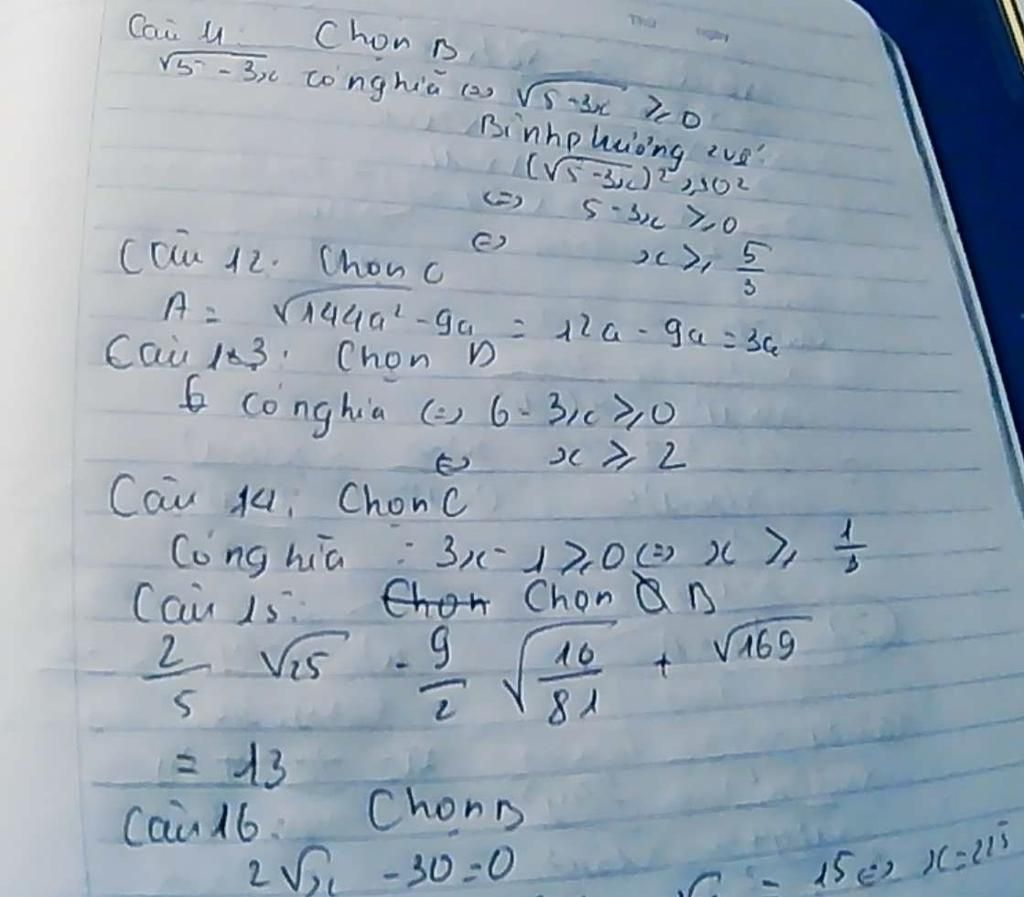 Câu 11: Chọn B
√5-3x có nghĩa <=> √5-3x ≥ 0
Bình phương 2 vế:
(√5-3x)² ≥ 0²
<=> 5-3x ≥ 0
<=> x ≥ 5/3
Câu 12: Chọn C
A = √144a² - 9a = 12a - 9a = 3a
Câu 13: Chọn D
có nghĩa <=> 6 - 3x ≥ 0
<=> x ≥ 2
Câu 14: Chọn C
Có nghĩa : 3x - 1 ≥ 0 <=> x ≥ 1/3
Câu 15: Chọn Chọn B
2/5 √25 - 9/2 √16/81 + √169
= 13
Câu 16: Chọn B
2√x - 30 = 0
= 15 <=> x = 225